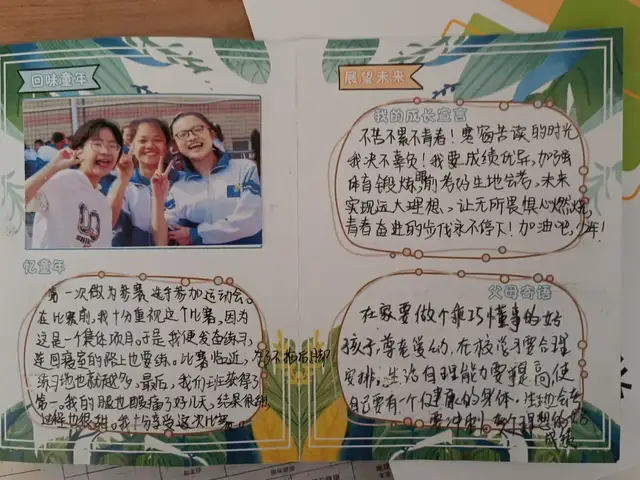 回味童年
忆童年
第一次做为参赛选手参加运动会。
在比赛前,我十分重视这个比赛,因为
这是一个集体项目。于是我便发奋练习,
连回寝室的路上也要练。比赛临近,为了不拖后脚
练习地也就越多。最后,我们班获得了
第一。我的腿也酸痛了好几天,结果很甜
过程也很甜。我十分享受这次比赛
展望未来
我的成长宣言
不苦不累不青春!寒窗苦读的时光
我决不辜负!我要成绩优异,加强
体育锻炼,考好生地会考,未来
实现远大理想。让无所畏惧心燃烧,
青春奋进的步伐永不停下!加油吧,少年!
父母寄语
在家要做个乖巧懂事的好
孩子,尊老爱幼,在校学习要合理
安排,生活自理能力要提高,使
自己要有一个健康的身体,生地会考
要冲刺 个理想的
成绩